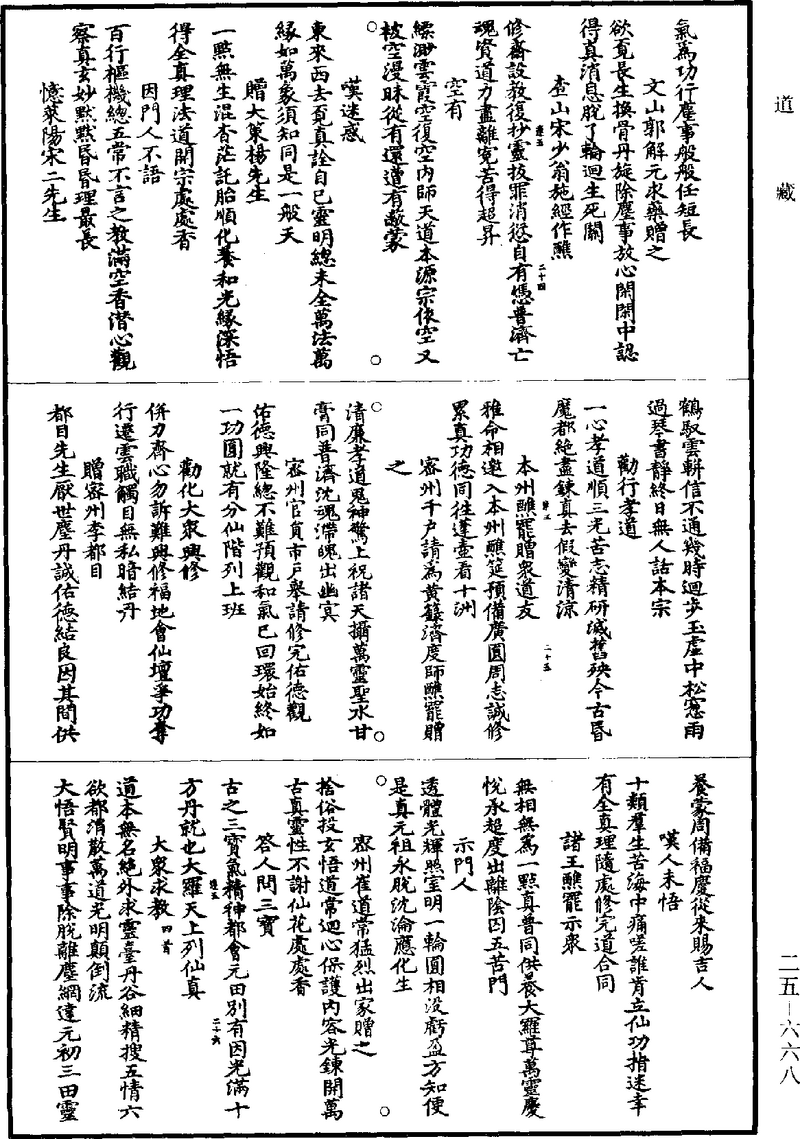 道藏
氣爲功行塵事般般任短長
文山郭解元求藥贈之
欲覓長生換骨丹旋除塵事放心閑閑中認
得真消息脫了輪迴生死關
查山宋少翁施經作醮
修齋設教復抄靈拔罪消愆自有憑普濟亡
魂資道力盡離寃苦得超昇
空有
縹渺雲霞空復空內師天道本源宗依空又
被空漫昧從有還遭有蔽蒙
嘆迷惑
東來西去覓真詮自已靈明總未全萬法萬
緣如萬象須知同是一般天
贈大策楊先生
一點無生混杳茫託胎順化養和光緣深悟
得全真理法道開宗處處香
因門人不語
百行樞機總五常不言之教滿空香潛心觀
察真玄妙默默昏昏理最長
憶萊陽宋二先生
鶴馭雲軿信不通幾時迴步玉虛中松窓雨
過琴書靜終日無人話本宗
勸行孝道
一心孝道順三光苦志精研滅舊殃今古昏
魔都絕盡鍊真去假變清涼
本州醮罷贈衆道友
雅命相邀入本州醮筵預備廣圓周志誠修
累真功德同往蓬壺看十洲
密州千戶請爲黃籙濟度師醮罷贈
之
清廉孝道鬼神驚上祝諸天攝萬靈聖水甘
膏同普濟沈魂滯魄出幽冥
密州官負市戶舉請修完佑德觀
佑德興隆總不難預觀和氣已回環始終如
一功圓就有分仙階列上班
勸化大衆興修
併力齊心勿訴難興修福地會仙壇爭功奪
行遷雲職觸目無私暗結丹
贈密州李都目
都目先生厭世塵丹誠佑德結良因其間供
養蒙周備福慶從來賜吉人
嘆人未悟
十類羣生苦海中痛嗟誰肯立仙功指迷幸
有全真理隨處修完道合同
諸王醮罷示衆
無相無爲一點真普同供養大羅尊萬靈慶
悅承超度出離陰囚五苦門
示門人
透體光輝照室明一輪圓相没虧盈方知便
是真元祖永脫沈淪應化生
密州崔道常猛烈出家贈之
捨俗投玄悟道常迴心保護內容光鍊開萬
古真靈性不謝仙花處處香
答人問三寶
古之三寶氣精神都會元田別有因光滿十
方丹就也大羅天上列仙真
大衆求教 四首
道本無名絕外求靈臺丹谷細精搜五情六
欲都消散萬道光明顛倒流
大悟賢明事事除脫離塵網達元初三田靈
二五－六六八